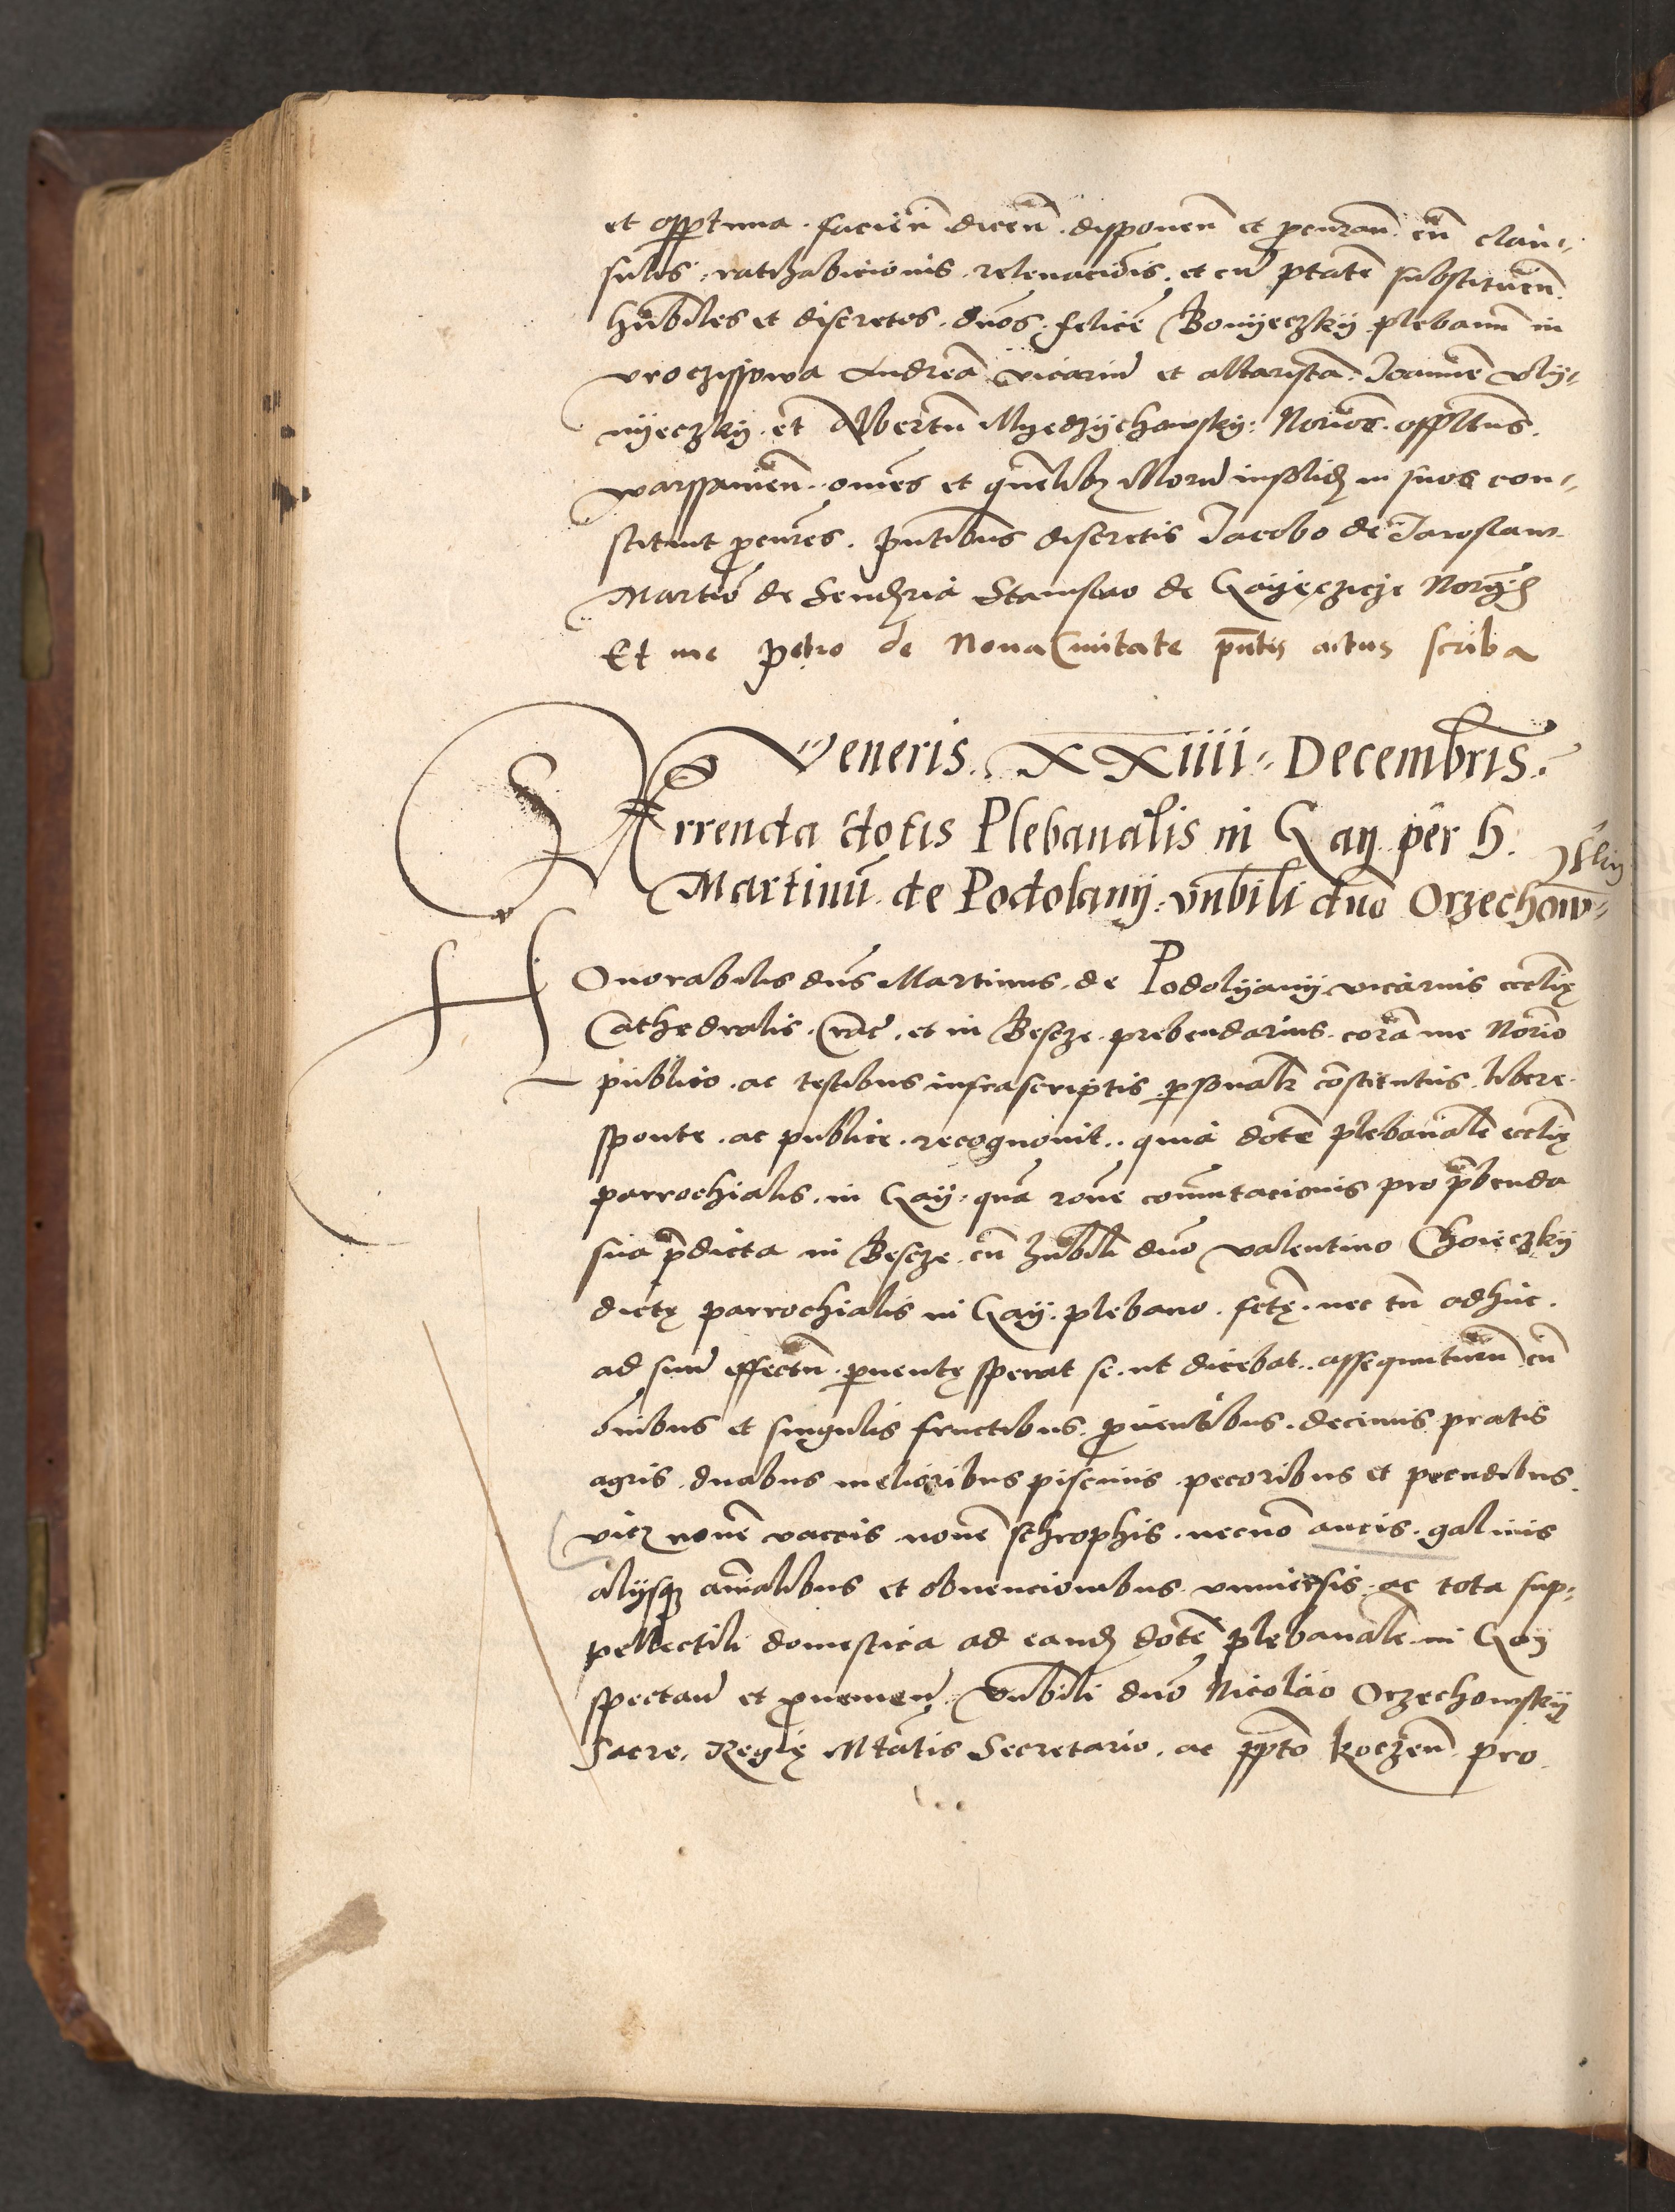 et opportuna. facien̄ dicen̄. disponen̄ et procuran̄. cū clau⸗
sulis. ratihabicionis. relenaciōis. et cū ptatē substituen̄.
hnbiles et discretos. dnōs. felicē Bonyeczky plebanū in
vroczissowa Andreā vicariū et altaristā. Ioannē
nyeczky. et Albertū Myedzychowsky. Norios. oppltuns.
warssavien̄. omēs et quēlibz illorū insolidz in suos con⸗
stituit procures. Pntibus discretis Iacobo de Iaroslaw
Martīo de Sendzria Stanislao de
Et me Petro de Nova Civitate pn̄tis actus scriba
Veneris. XXiiii. Decembris.
Arrenda dotis Plebanalis in Gay. per h.
Martinū. de Podolany. vnbili dno Orzechow⸗
HOnorabilis dns Martinus. de Podolyany vicarius ecclie
Cathedralis. Crac̄. et in Bescze. prebendarius. corā me Norio
publico. ac testibus infrascriptis personalr cōstitutus. libere.
sponte. ac publice. recognovit.. quia dotē plebanalē ecclie
parrochialis. in Gay. quā rone comutacionis pro prebenda
sua predicta in Bescze. cū hnbili dno valentino Choieczky
dicte parrochialis in Gay. plebano. fcte. nec tn̄ adhuc.
ad suū effectū. pervente sperat se. ut dicebat.. assequuturū cū
oībus et singulis fructibus. proventibus. decimis. pratis
agris. duabus melioribus piscinis. pecoribus et pecudibus.
vicz novē vaccis novē schrophis. necnō aucis. galinis
alijsqz aīalibus et obvencionibus. vniversis. ac tota sup⸗
pellectili domestica ad eandz dotē plebanalē in Gay
spectan̄ et provenien̄. Vnbili dno Nicolao Orzechowsky
Sacre. Regie Mtatis Secretario. ac ppto koczen̄. pro.